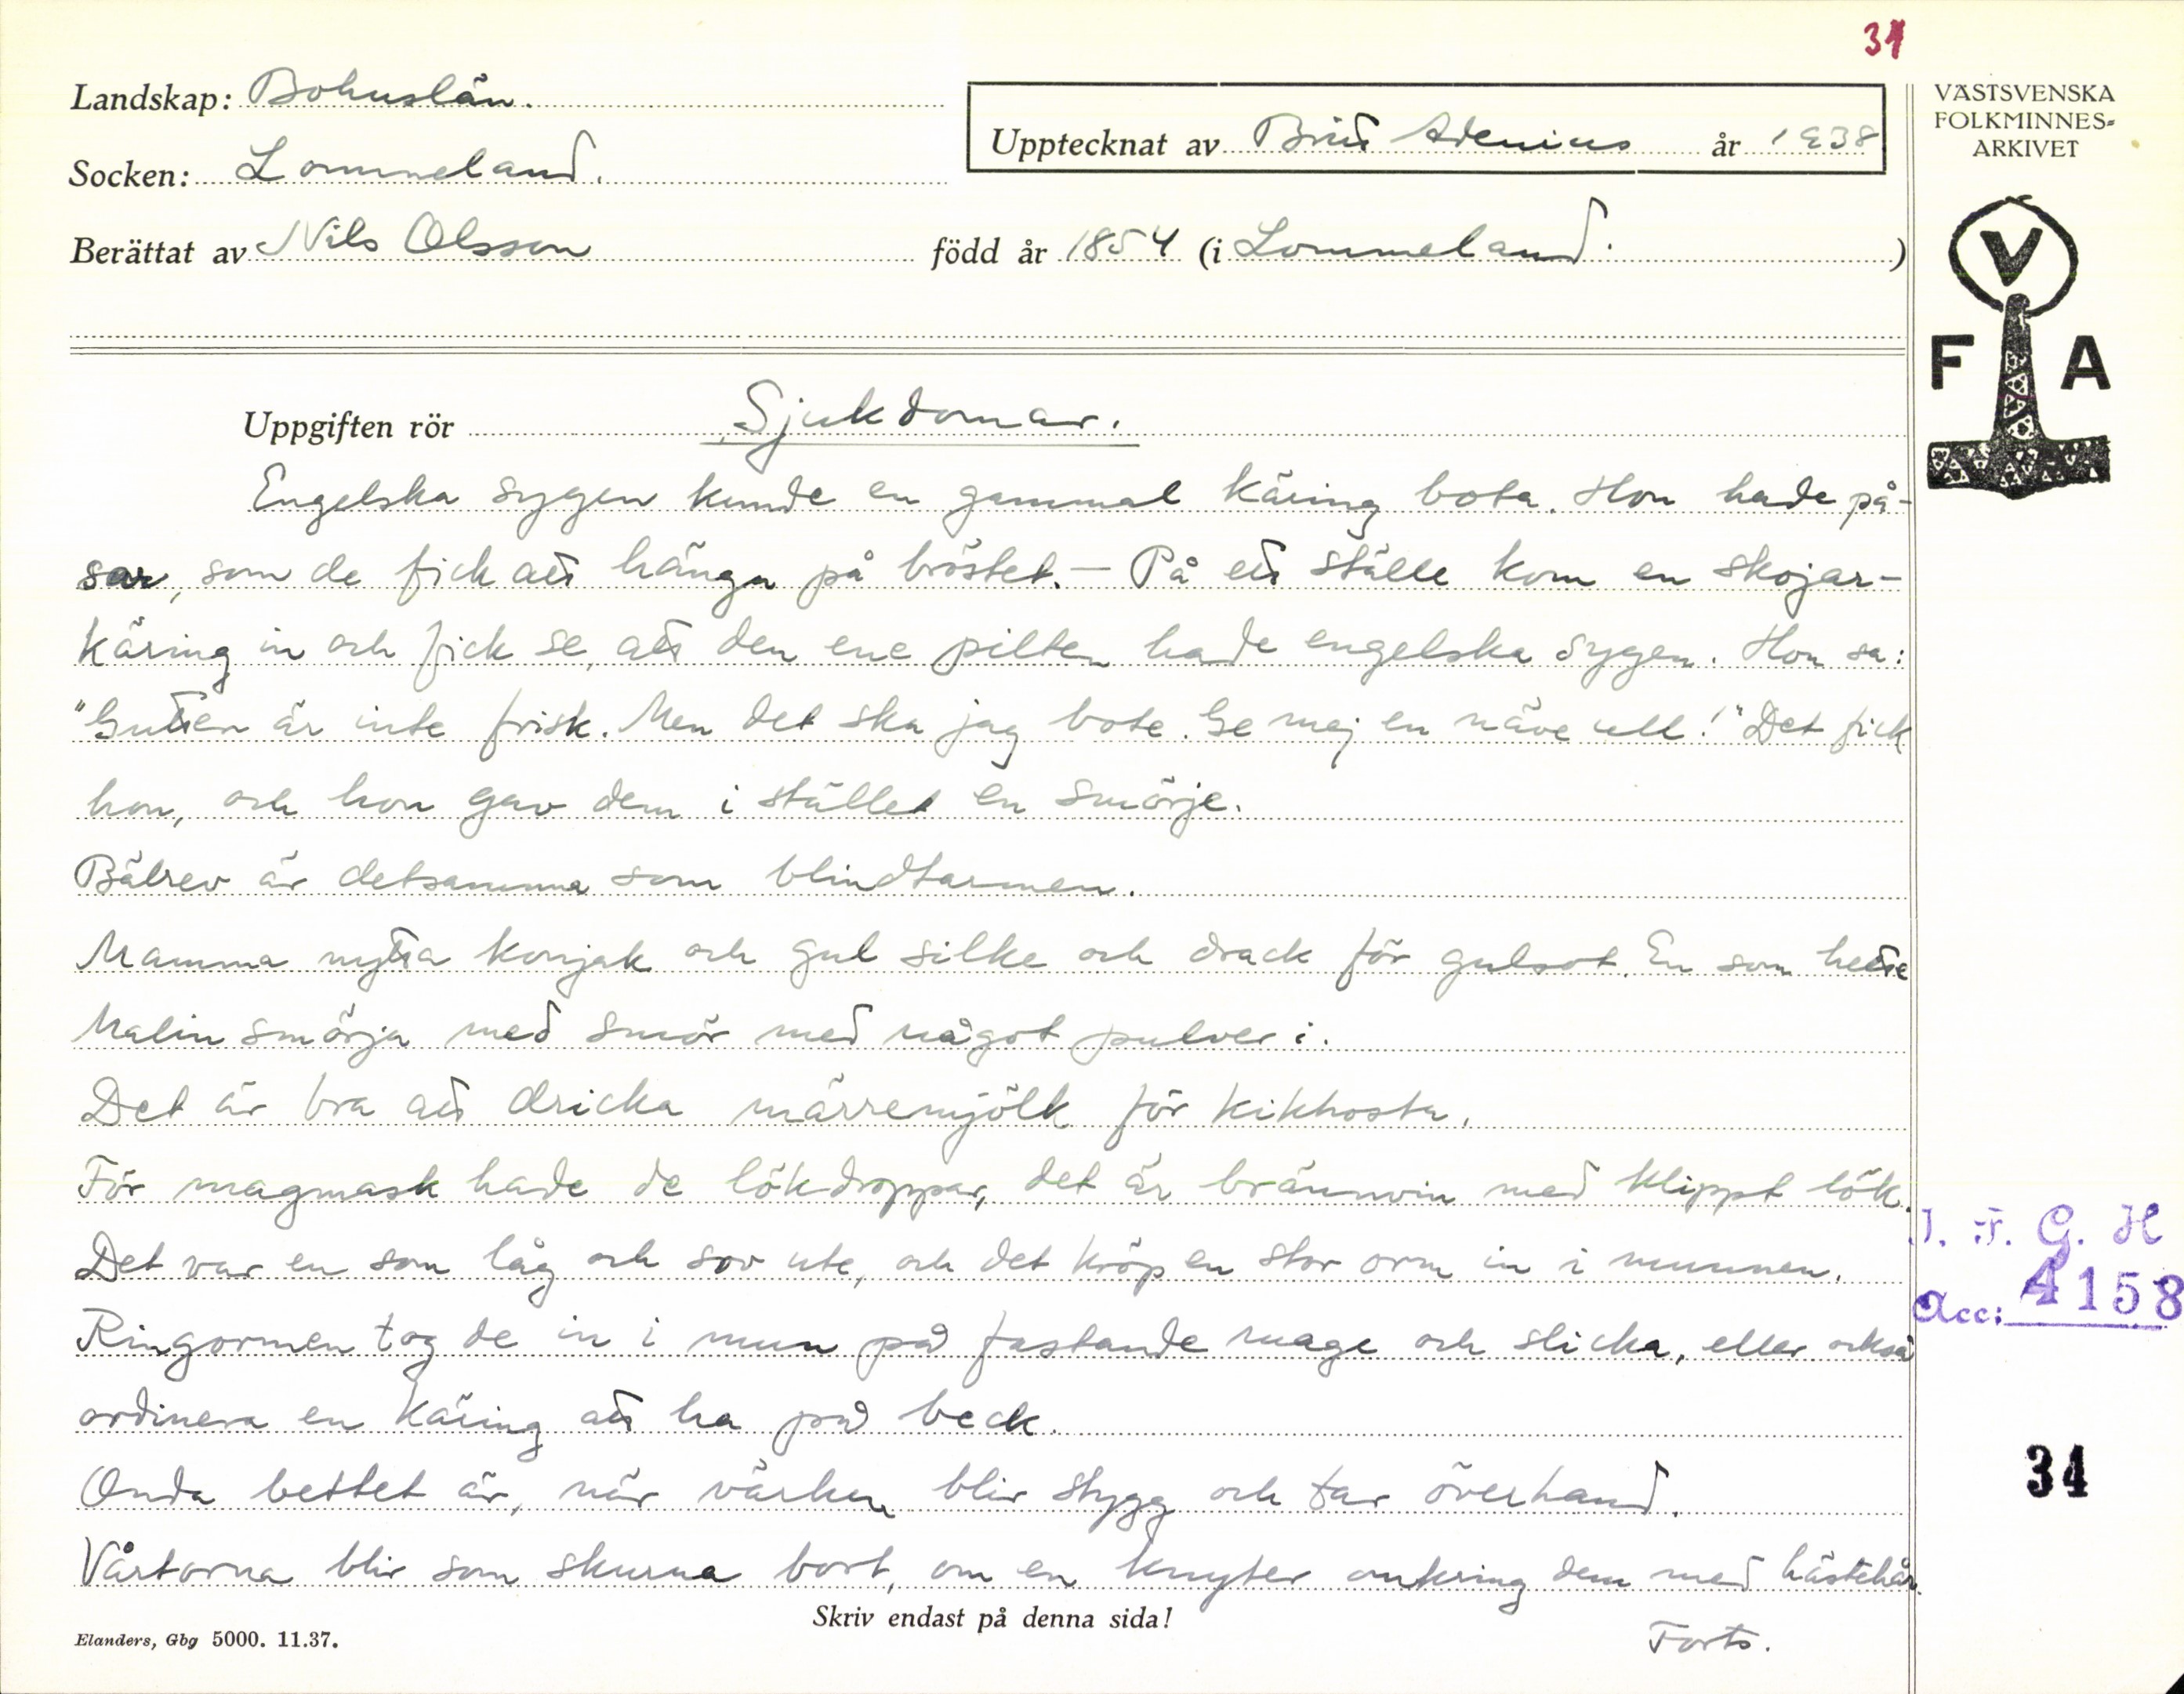 31
Landskap: Bohuslän.
Socken: Lommeland.
Upptecknat av Brita Adenius år 1938
Berättat av Nils Olsson född år 1854 (i Lommeland. )
VÄSTSVENSKA
FOLKMINNES-
ARKIVET
V
F A
Uppgiften rör Sjukdomar.
Engelska sygen kunde en gammal käring bota. Hon hade på-
sar, som de fick att hänga på bröstet. — På ett ställe kom en skojar-
käring in och fick se, att den ene pilten hade engelska sygen. Hon sa:
"Gutten är inte frisk. Men det ska jag bote. Ge mej en näve ull!" Det fick
hon, och hon gav dem i stället en smörje.
Bälrev är detsamma som blindtarmen.
Mamma nytta konjak och gul silke och drack för gulsot. En som hette
Malin smörja med smör med något pulver i.
Det är bra att dricka märremjölk för kikhosta.
För magmask hade de lökdroppar, det är brännvin med klippt lök.
Det var en som låg och sov ute, och det kröp en stor orm in i munnen.
Ringormen tog de in i mun på fastande mage och slicka, eller också
ordinera en käring att ha på beck.
Onda bettet är, när värken blir stygg och tar överhand.
Vårtorna blir som skurna bort, om en knyter omkring dem med hästehår.
I. F. G. H
Acc: 4158
34
Skriv endast på denna sida!
Elanders, Gbg 5000. 11.37.
Forts.